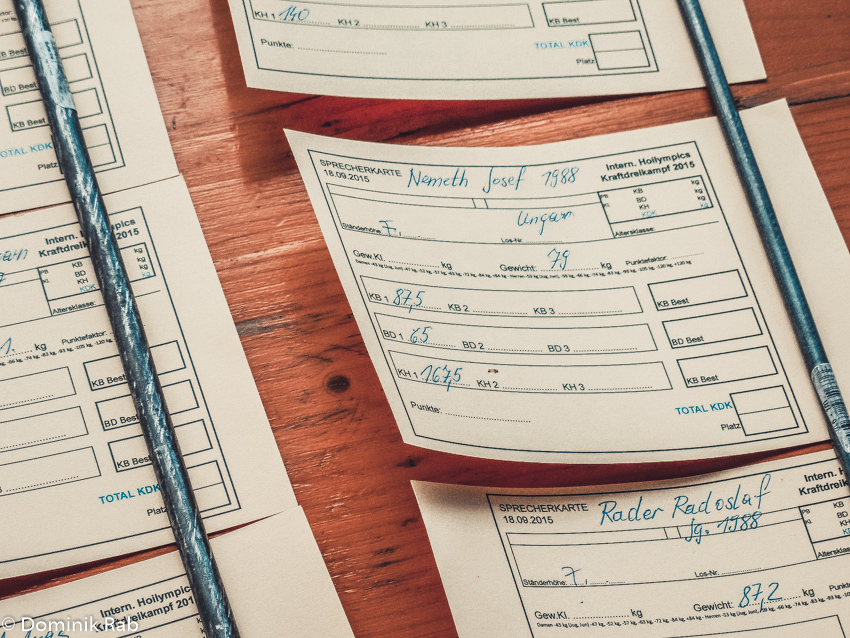 KH 1 140 KH 2 KH 3
KB Best
Punkte:
TOTAL KDK
Platz
KB Best
BD Best
KB Best
TOTAL KDK
Platz
SPRECHERKARTE
18.09.2015
Nemeth Josef 1988
Intern. Hollympics
Kraftdreikampf 2015
Ungarn
PB KB kg
Kl. BD kg
KH kg
KDK kg
Ständerhöhe: 7,
Los-Nr.
Altersklasse:
Gew.Kl. kg Gewicht: 79 kg Punktefaktor:
KB 1 87,5 KB 2 KB 3
KB Best
BD 1 65 BD 2 BD 3
BD Best
KH 1 167,5 KH 2 KH 3
KB Best
Punkte:
TOTAL KDK
Platz
Intern. Hollympics
Kraftdreikampf 2015
KB kg
BD kg
KH kg
KDK kg
Altersklasse:
1. kg Punktefaktor:
KB Best
BD Best
KB Best
TOTAL KDK
Platz
SPRECHERKARTE
18.09.2015
Rader Radoslaf
Jg. 1988
PB KB
Kl. BD
KH
Ständerhöhe: 7,
Los-Nr.
Gew.Kl. kg Gewicht: 87,2 kg
Intern. Hollympics
© Dominik Rab